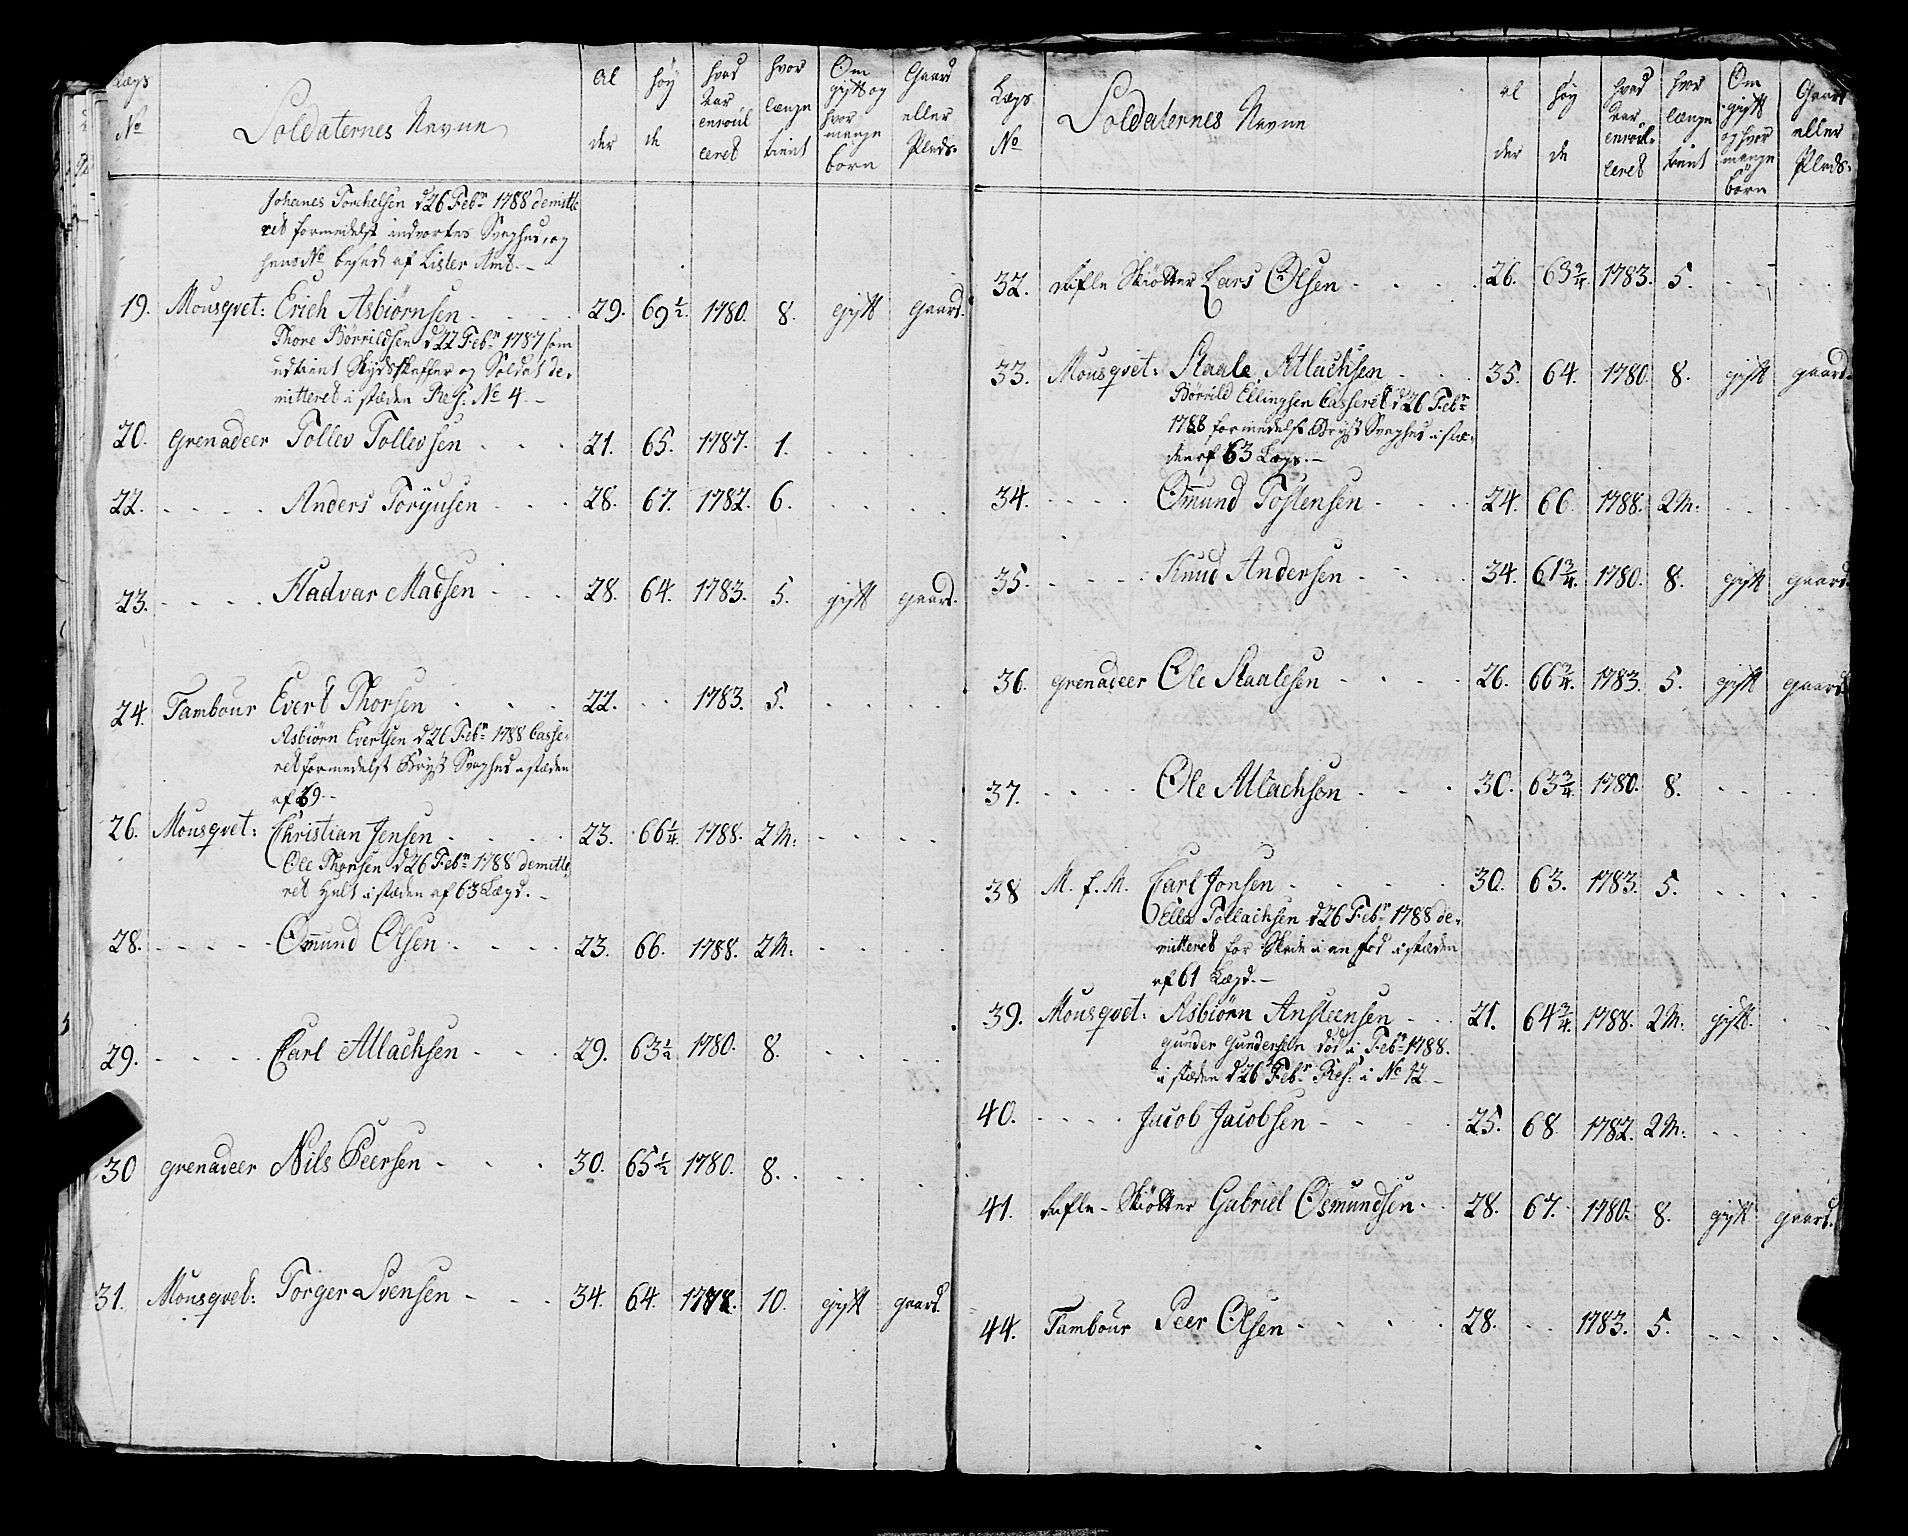 Lægs No Soldaternes Navne al der høy de hvad Aar enroul leret hvor længe tient Om gift og hvor mange børn Gaard eller Plads.
Johanes Torchelsen d 26 Febr 1788 demitte
ret formedelst indvortes Svaghed, og
hans No besadt af Lister Amt.
19. Mousqvet: Erich Asbiørnsen 29. 69 1/2. 1780. 8. gift gaard.
Thore Børrildsen d 22 Febr 1787 som
udtient Skydsskaffer og Soldat de-
mitteret i stæden Res: No 4.
20. grenadeer Tollev Tollevsen 21. 65. 1787. 1.
22. Anders Torjusen 28. 67. 1782. 6.
23. Hadvar Madsen 28. 64. 1783. 5. gift gaard.
24. Tambour Evert Thorsen 22. 1783. 5.
Asbiørn Evertsen d 26 Febr 1788 Casse-
ret formedelst Bryst Svaghed i stæden
af 69.
26. Mousqvet: Christian Jensen 23. 66 1/4. 1788. 2 M:
Ole Thorsen d 26 Febr 1788 demitte-
ret Halt i stæden af 63 Lægd.
28. Omund Olsen 23. 66. 1788. 2 M:
29. Carl Atlachsen 29. 63 1/2 1780. 8.
30 grenadeer Nils Peersen 30. 65 1/2 1780. 8.
31. Mousqvet: Torger Svensen 34. 64. 1778. 10. gift gaard.
Lægs No Soldaternes Navne al der høy de hvad Aar enroul- leret hvor længe tient Om gift og hvor mange børn Gaard eller Plads.
32. Rifle Skiøtter Lars Olsen 26. 63 3/4 1783. 5.
33. Mousqvet: Staale Atlachsen 35. 64. 1780. 8. gift gaard.
Børrild Ellingsen Casseret d 26 Febr
1788 formedelst Bryst Svaghed i stæ-
den af 63 Lægs.
34. Omund Tostensen 24. 66 1788. 2 M:
35. Knud Andersen 34. 61 3/4. 1780. 8. gift gaard.
36. grenadeer Ole Staalesen 26. 66 3/4. 1783. 5. gift gaard
37. Ole Atlachsen 30. 63 3/4. 1780. 8.
38 M. f. M. Carl Jonsen 30. 63. 1783. 5.
Tollachsen d 26 Febr 1788 de-
mitteret for Skade i en fod i stæden
af 61 Lægd.
39. Mousqvet: Asbiørn Ansteensen 21. 64 3/4. 1788. 2 M: gift.
Gunder Gundersen død i Febr 1788.
i stæden d 26 Febr Res: i No 12
40. Jacob Jacobsen 25. 68. 1782. 2 M:
41. Rifle-Skiøtter Gabriel Osmundsen 28. 67. 1780. 8. gift gaard.
44. Tambour Peer Olsen 28. 1783. 5.